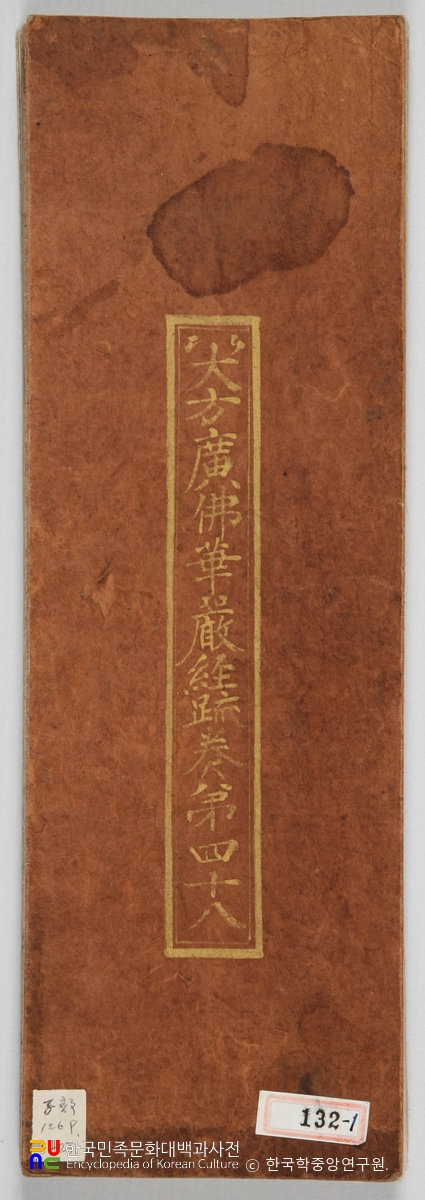 大方廣佛華嚴經疏卷第四十八
132-1
126P.
한국민족문화대백과사전
Encyclopedia of Korean Culture ⓒ 한국학중앙연구원.